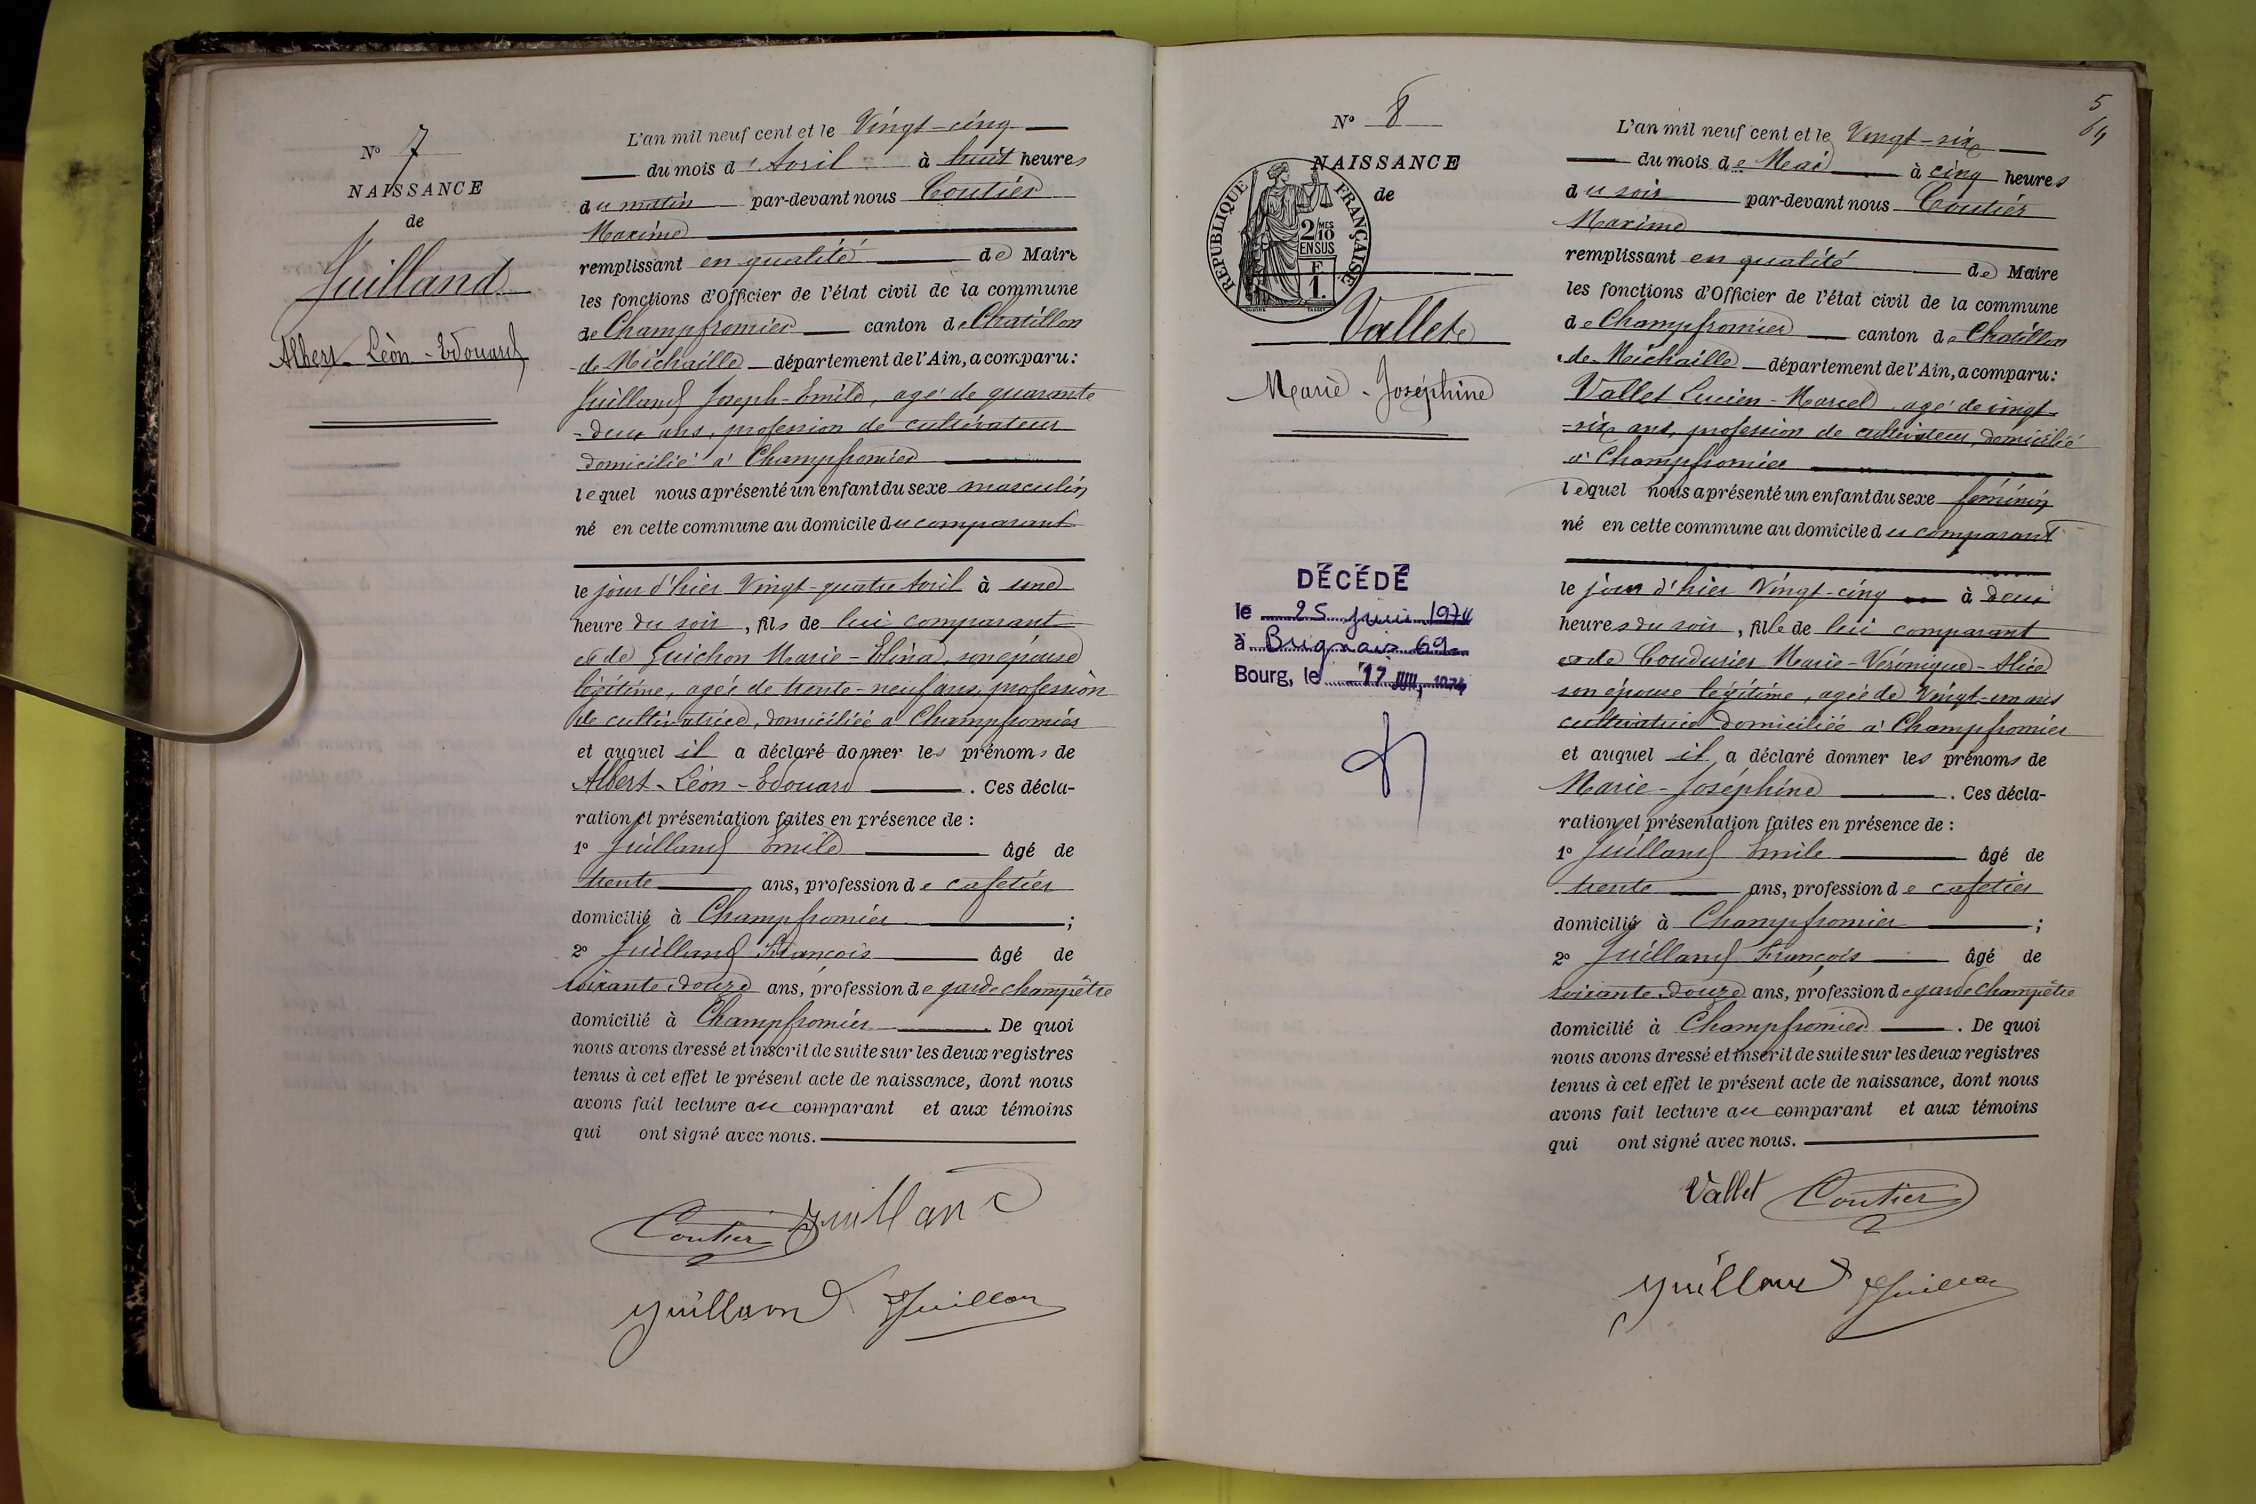 N° 7
NAISSANCE
de
Juilland
Albert-Léon-Edouard
L'an mil neuf cent et le Vingt-cinq
du mois d'Avril à huit heures
du matin par-devant nous Coutier
Maxime
remplissant en qualité de Maire
les fonctions d'Officier de l'état civil de la commune
de Champfromier canton de Chatillon
de Michaille département de l'Ain, a comparu:
Juilland Joseph-Emile, agé de quarante
-deux ans, profession de cultivateur
domicilié à Champfromier
lequel nous a présenté un enfant du sexe masculin
né en cette commune au domicile du comparant
le jour d'hier Vingt-quatre Avril à une
heure du soir, fils de lui comparant
et de Guichon Marie-Elina, son épouse
légitime, agée de trente-neuf ans, profession
de cultivatrice, domiciliée à Champfromier
et auquel il a déclaré donner les prénoms de
Albert-Léon-Edouard. Ces décla-
ration et présentation faites en présence de:
1° Juilland Emile âgé de
trente ans, profession de cafetier
domicilié à Champfromier;
2° Juilland François âgé de
soixante-douze ans, profession de garde champêtre
domicilié à Champfromier. De quoi
nous avons dressé et inscrit de suite sur les deux registres
tenus à cet effet le présent acte de naissance, dont nous
avons fait lecture au comparant et aux témoins
qui ont signé avec nous.
Coutier Juilland
Juilland Juillan
5
N° 8
NAISSANCE
de
REPUBLIQUE FRANÇAISE
2/10 MES
EN SUS
F
1.
Vallet
Marie-Joséphine
DÉCÉDÉ
le 25 Juin 1974
à Brignais 69
Bourg, le
L'an mil neuf cent et le Vingt-six
du mois de Mai à cinq heures
du soir par-devant nous Coutier
Maxime
remplissant en qualité de Maire
les fonctions d'Officier de l'état civil de la commune
de Champfromier canton de Chatillon
de Michaille département de l'Ain, a comparu:
Vallet Lucien-Marcel, agé de vingt-
-six ans, profession de cultivateur, domicilié
à Champfromier
lequel nous a présenté un enfant du sexe féminin
né en cette commune au domicile du comparant
le jour d'hier Vingt-cinq à deux
heures du soir, fille de lui comparant
et de Coudurier Marie-Véronique-Alice
son épouse légitime, agée de Vingt-un ans
cultivatrice domiciliée à Champfromier
et auquel il a déclaré donner les prénoms de
Marie-Joséphine. Ces décla-
ration et présentation faites en présence de:
1° Juilland Emile âgé de
trente ans, profession de cafetier
domicilié à Champfromier;
2° Juilland François âgé de
soixante-douze ans, profession de garde champêtre
domicilié à Champfromier. De quoi
nous avons dressé et inscrit de suite sur les deux registres
tenus à cet effet le présent acte de naissance, dont nous
avons fait lecture au comparant et aux témoins
qui ont signé avec nous.
Vallet Coutier
Juilland